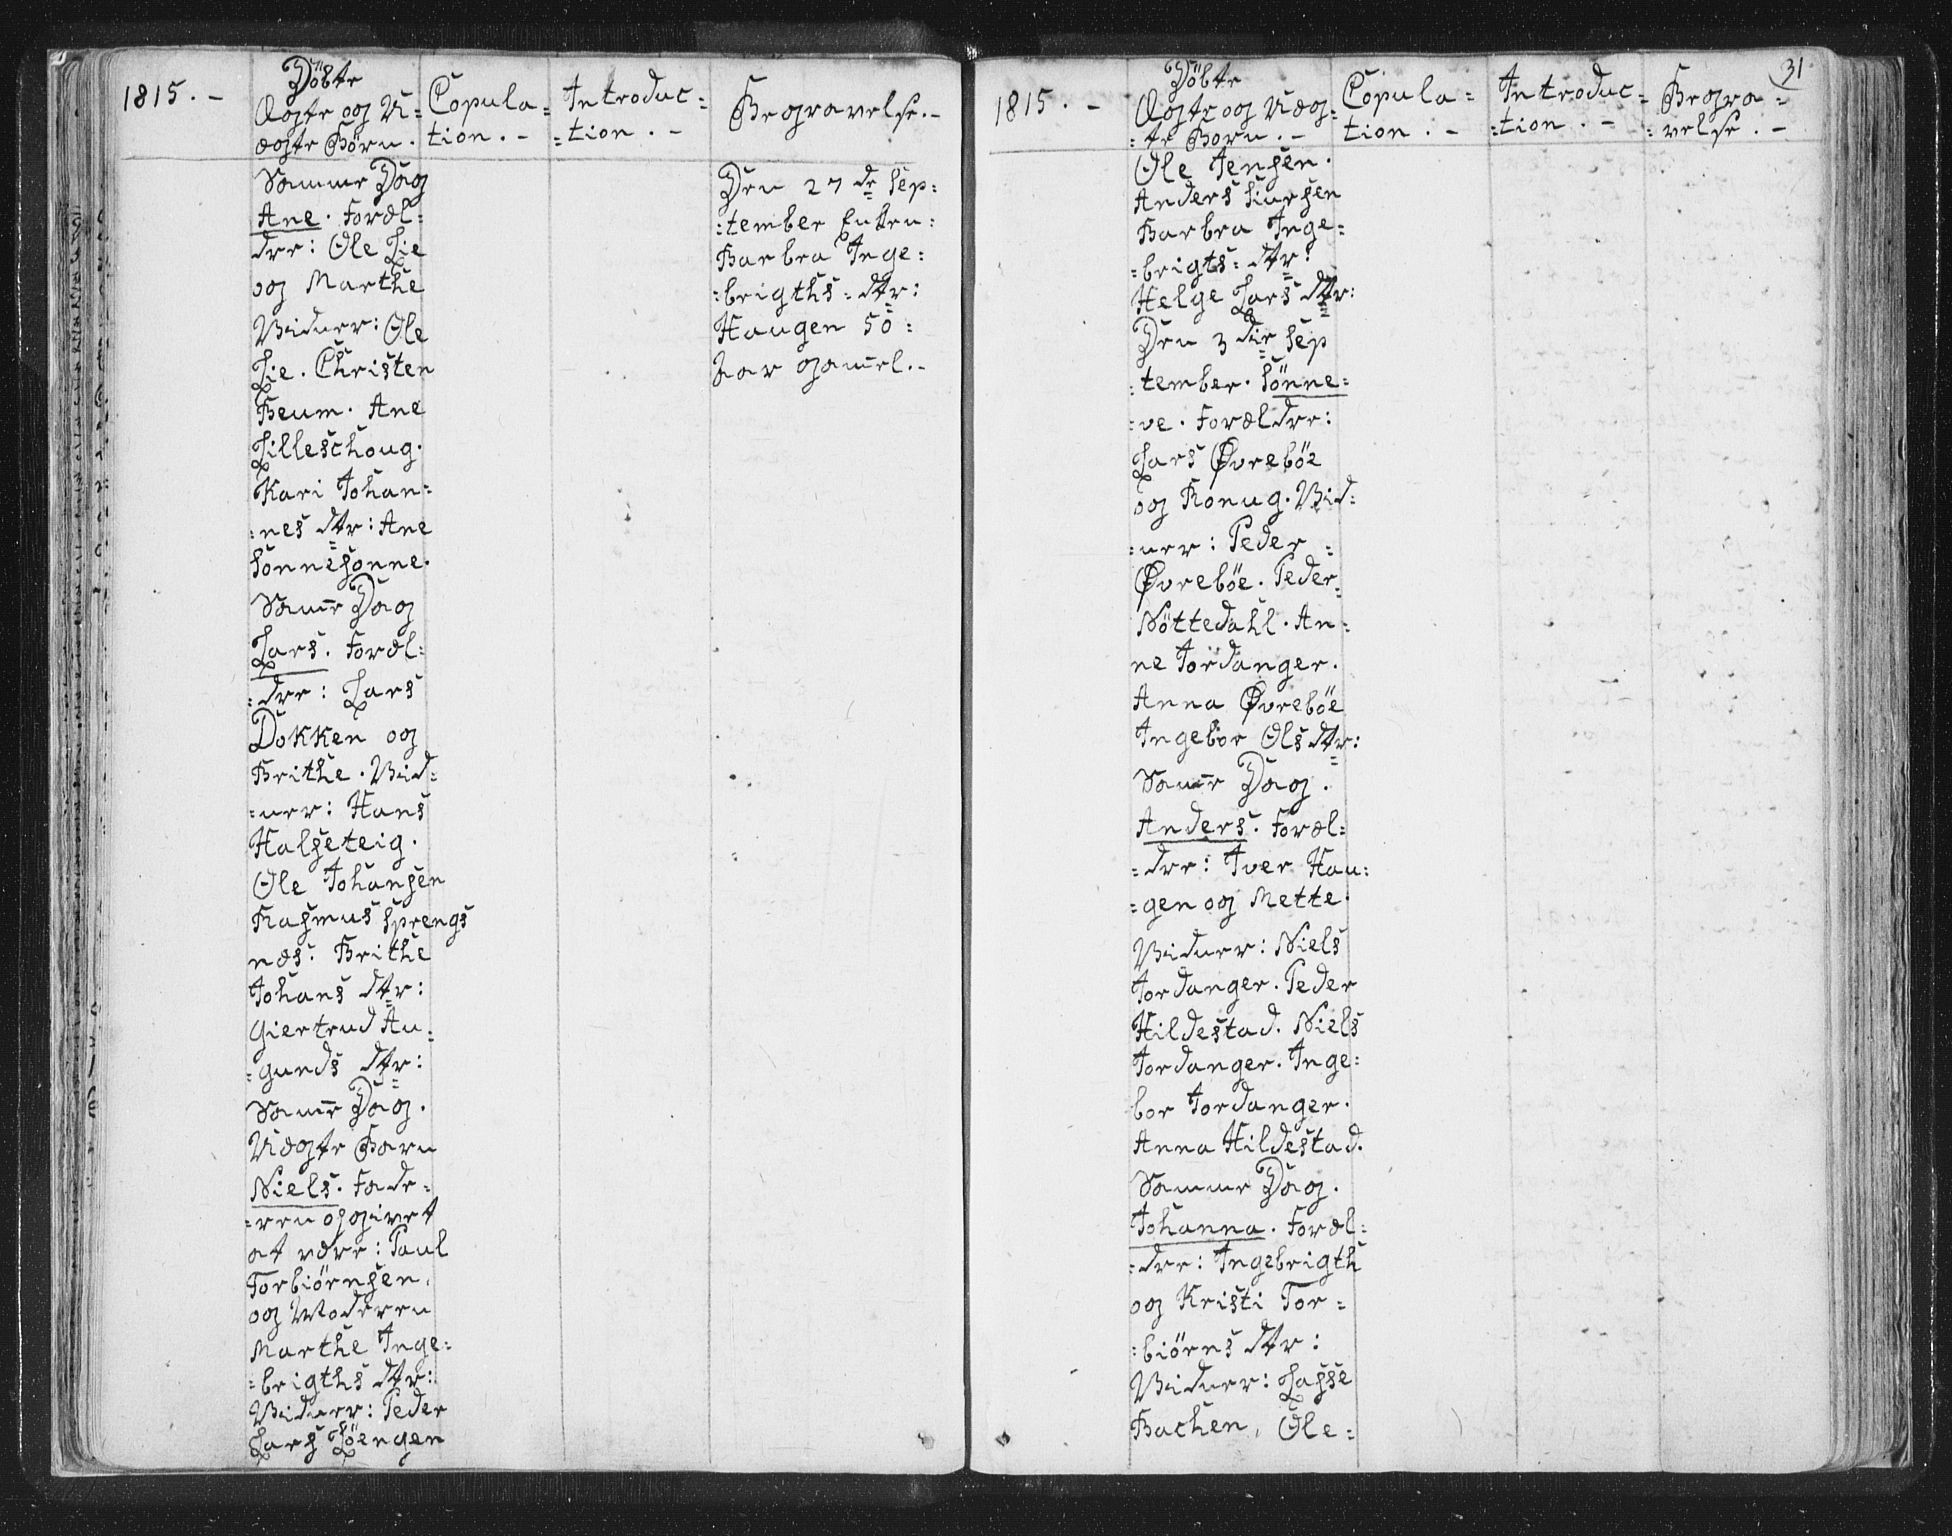 1815. -
Döbte
Ægte og U=
ægte Börn.
Copula=
tion. -
Introduc=
=tion. -
Begravelse. -
Samme Dag
Ane. Foræl=
dre: Ole Lie
og Marthe
Vidner: Ole
Lie. Christen
Beum. Ane
Lilleschoug.
Kari Johan=
=nes dtr: Ane
Sönnesönne.
Samme Dag
Lars. Foræl=
=dre: Lars
Dokken og
Brithe. Vid=
=ner: Hans
Halseteig.
Ole Johansen
Rasmus Sprengs
næs. Brithe
Johans dtr:
Giertrud Au=
=gunds dtr:
Samme Dag.
Uægte Barn
Niels. Fade=
=ren opgivet
at være: Paul
Torbiörnsen.
og Moderen
Marthe Inge=
=brigths dtr:
Vidner: Peder
Lars Löengen
Den 27de Sep=
=tember Enken=
Barbra Inge=
=brigths=dtr:
Haugen 50=
Aar gamel. -
31.
1815. -
Döbte
Ægte og Uæg=
=te Börn. -
Copula=
tion. -
Introduc=
=tion. -
Begra=
=velse. -
Ole Jensen.
Anders Siursen
Barbra Inge=
=brigts=dtr:
Helge Lars dtr:
Den 3die Sep
=tember. Sönne=
=ve. Forældre:
Lars Øvreböe
og Ronug. Vid=
=ner: Peder=
Øvreböe. Peder=
Nöttedahl. An=
ne Jordanger.
Anna Øvreböe
Ingebor Ols dtr:
Samme Dag.
Anders. Foræl=
=dre: Iver Hau=
=gen og Mette.
Vidner: Niels
Jordanger. Peder
Hildestad. Niels
Jordanger. Inge=
bor Jordanger.
Anna Hildestad.
Samme Dag.
Johanna. Foræl=
=dre: Ingebrigth
og Kristi Tor=
=biörns dtr:
Vidner: Lasse
Bachen, Ole=